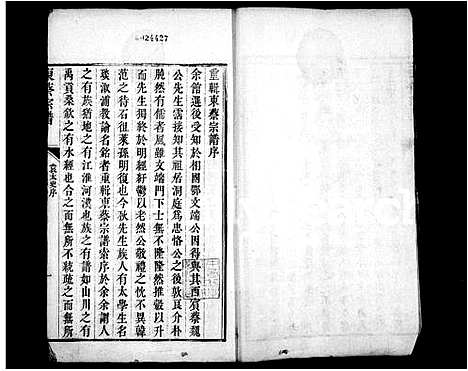 024427
重輯東蔡宗譜序
余舘選後受知於相國鄂文端公因得與其西賓蔡魏
公先生雲接知其祖居洞庭爲忠恪公之後敦良介朴
屍然有儒者風雖文端門下士無不隆隆然推轂以升
而先生獨以明經紆鬱以老然公敬禮之忱不異韓
范之待石徂萊孫明復也今秋先生族人有太學生名
燮溆浦教諭名銘者重輯東蔡宗譜索序於余余謂人
之有族猶地之有江淮河漢也族之有譜如山川之有
禹貢桑欽之有水經也合之而無所不統疏之而無所
東蔡宗譜
袁太史序
一